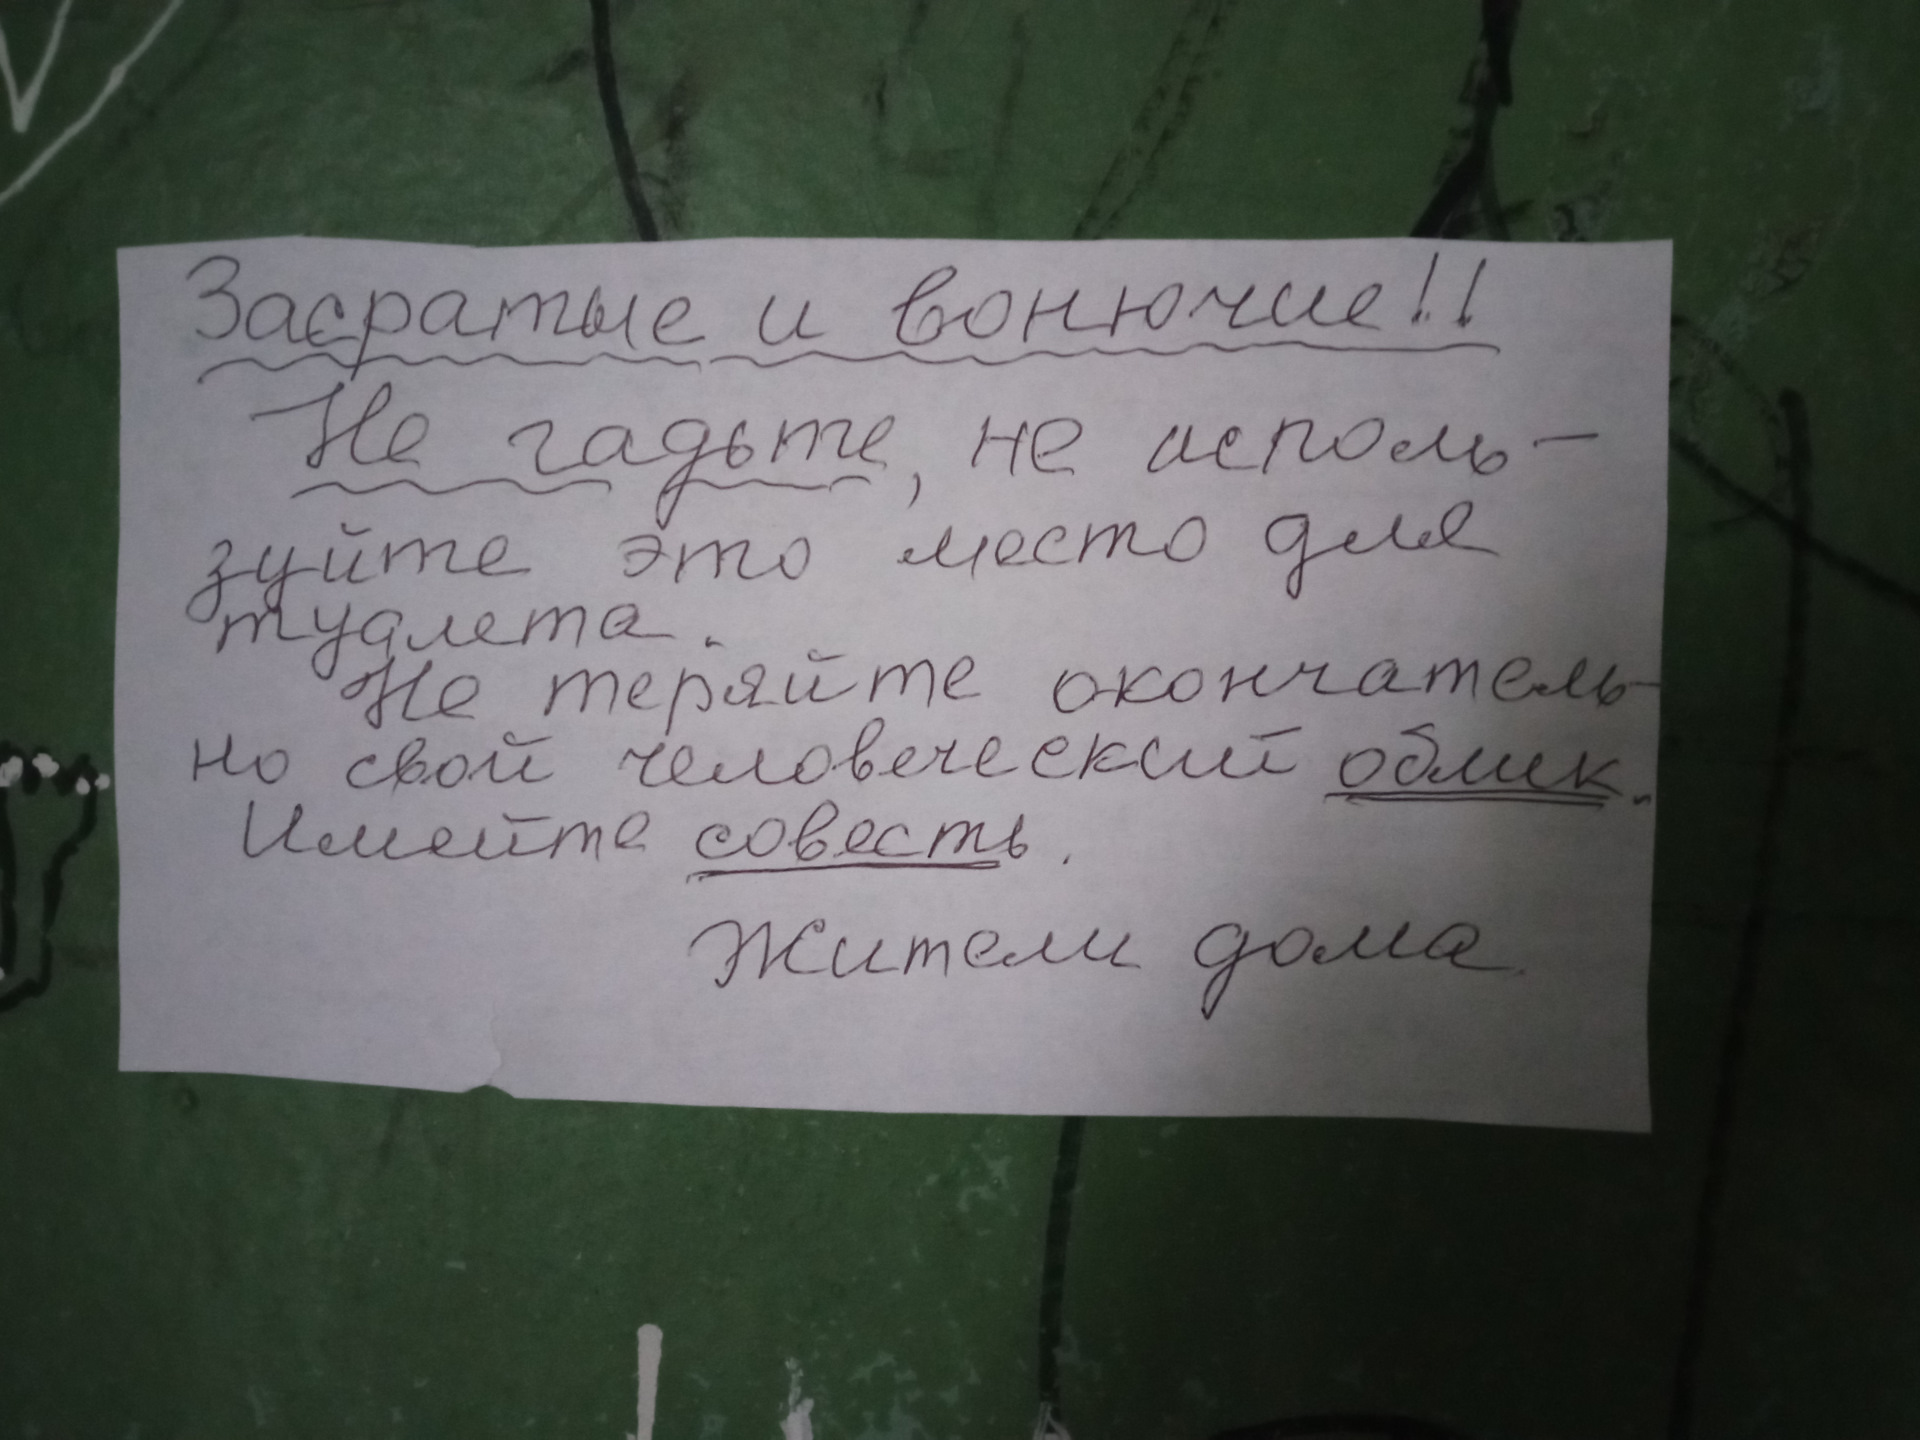 Засратые и вонючие!!
Не гадьте, не исполь-
зуйте это место для
туалета.
Не теряйте окончатель-
но свой человеческий облик.
Имейте совесть.
Жители дома.